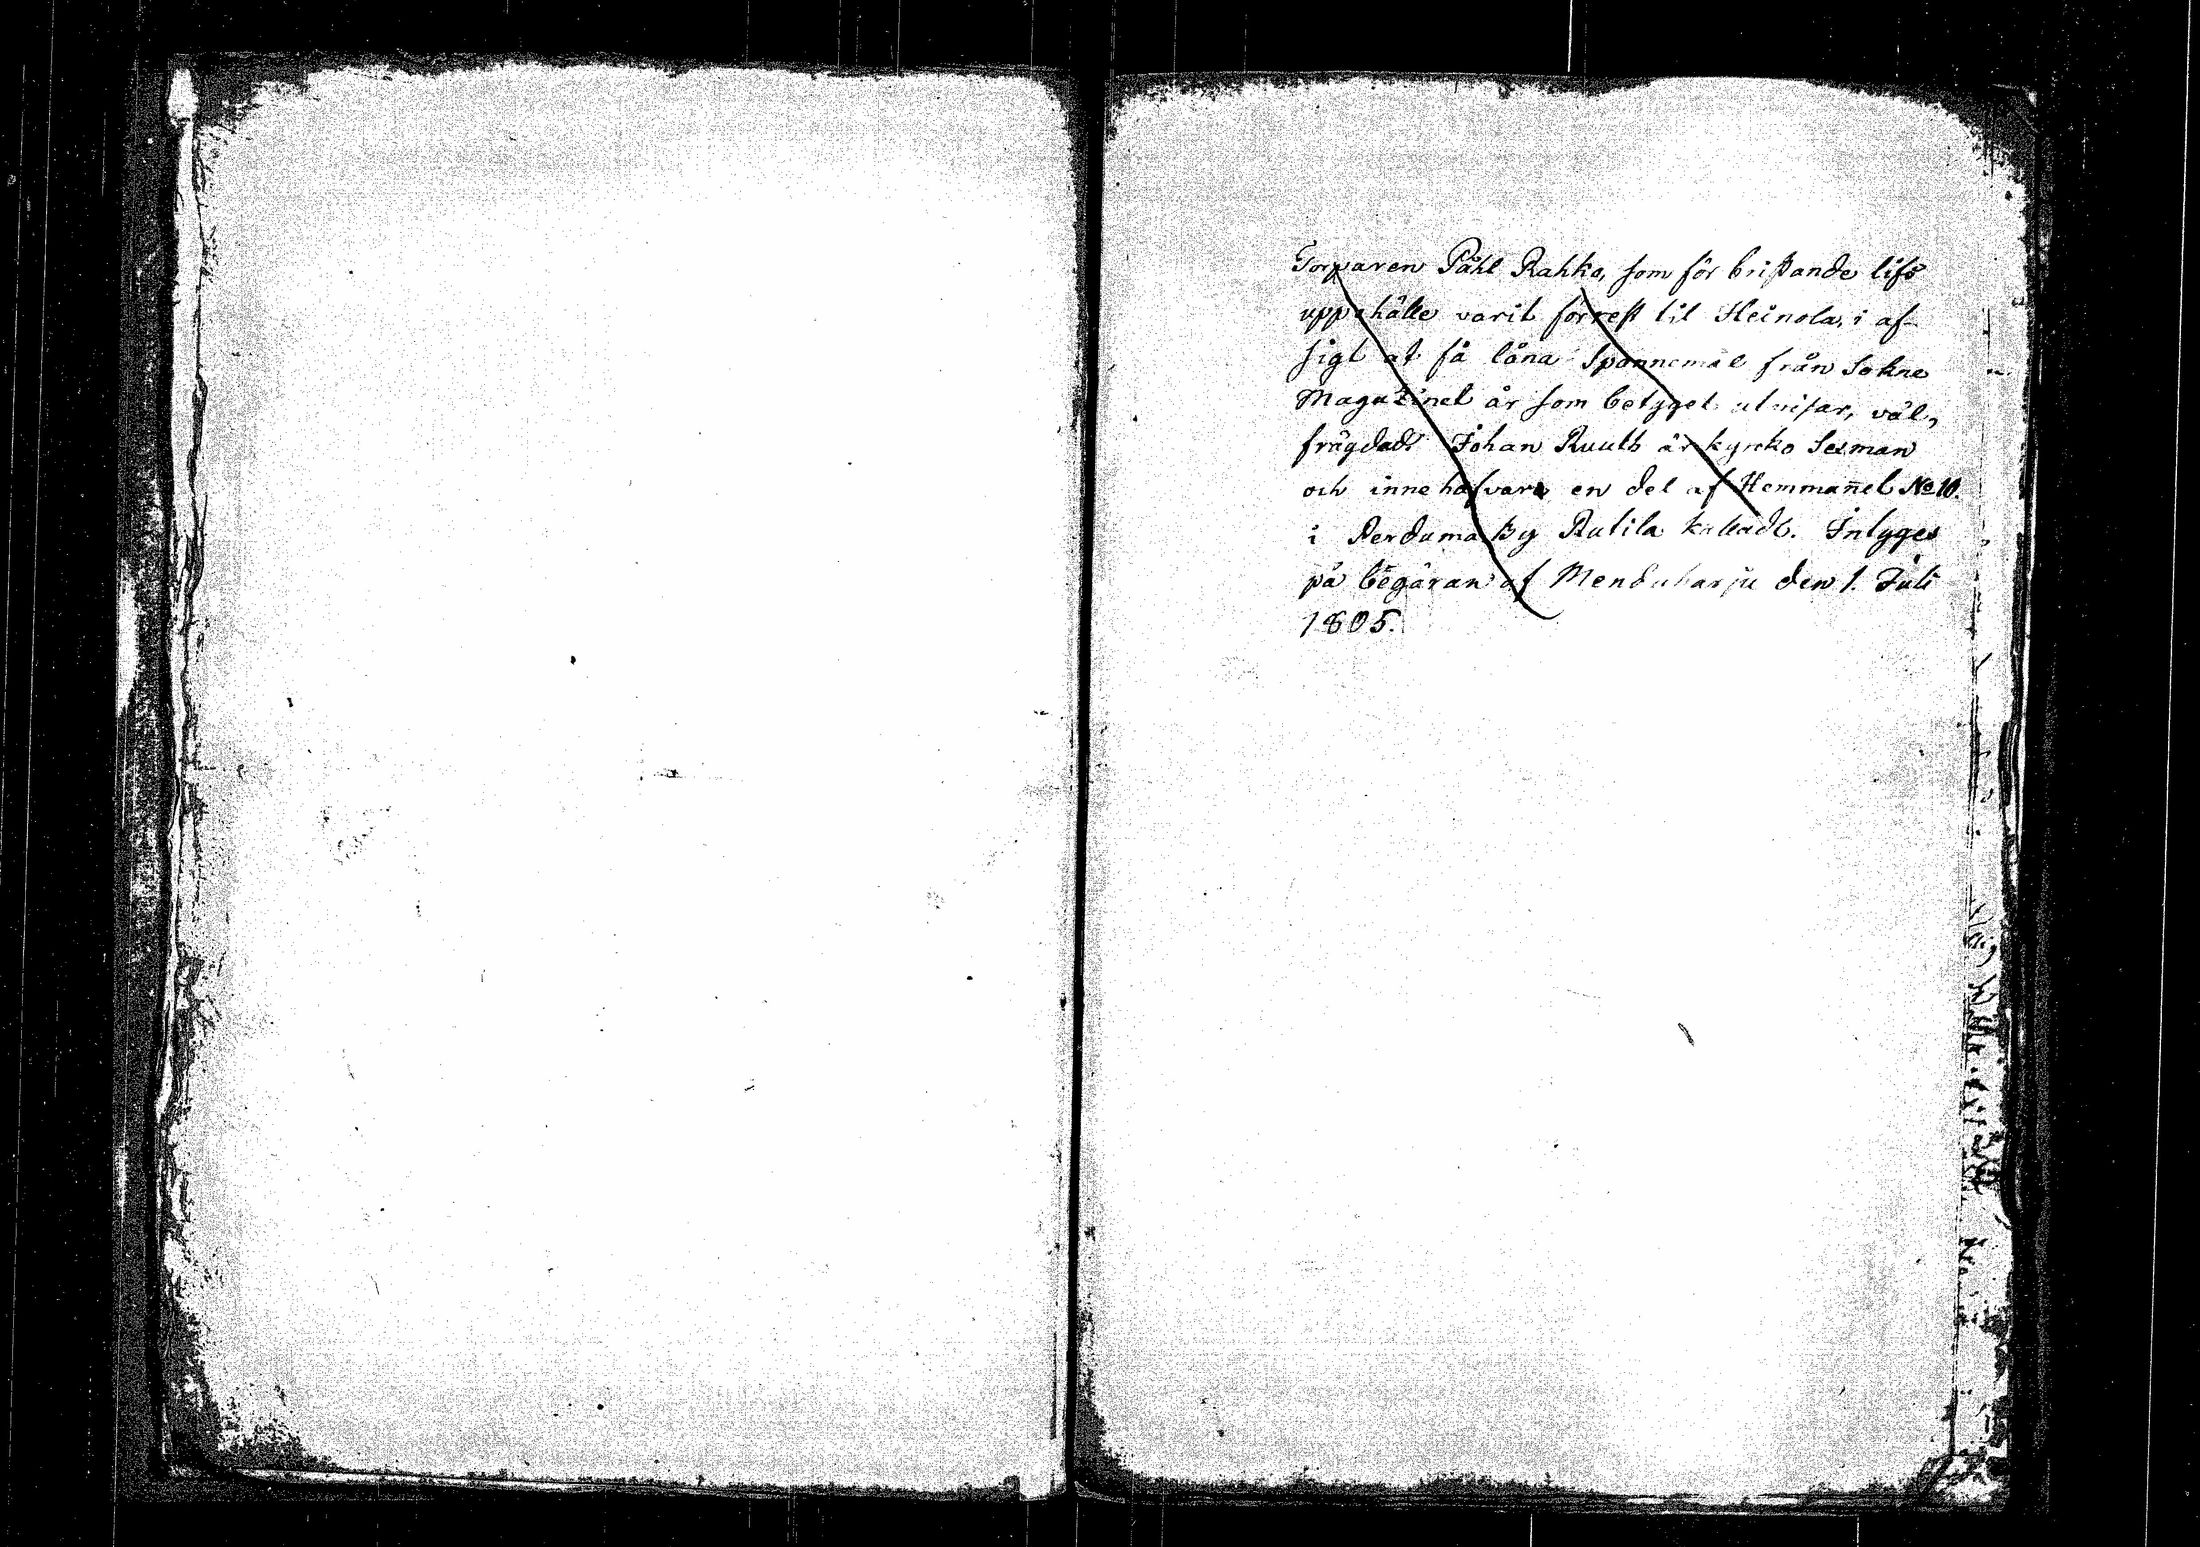 Torparen Påhl Rahko, som för bristande lifs
uppehälle varit förrest til Heinola, i af-
sigt at få låna Spannemål från Sokne
Magazinet är som betyget utvisar, väl,
frägdadt Johan Ruuth är kyrko Sexman
och innehafvare en del af Hemmanet No 10.
i Perduma By Rutila kalladt. Intyges
på begäran af Menduharju den 1. Juli
1805.